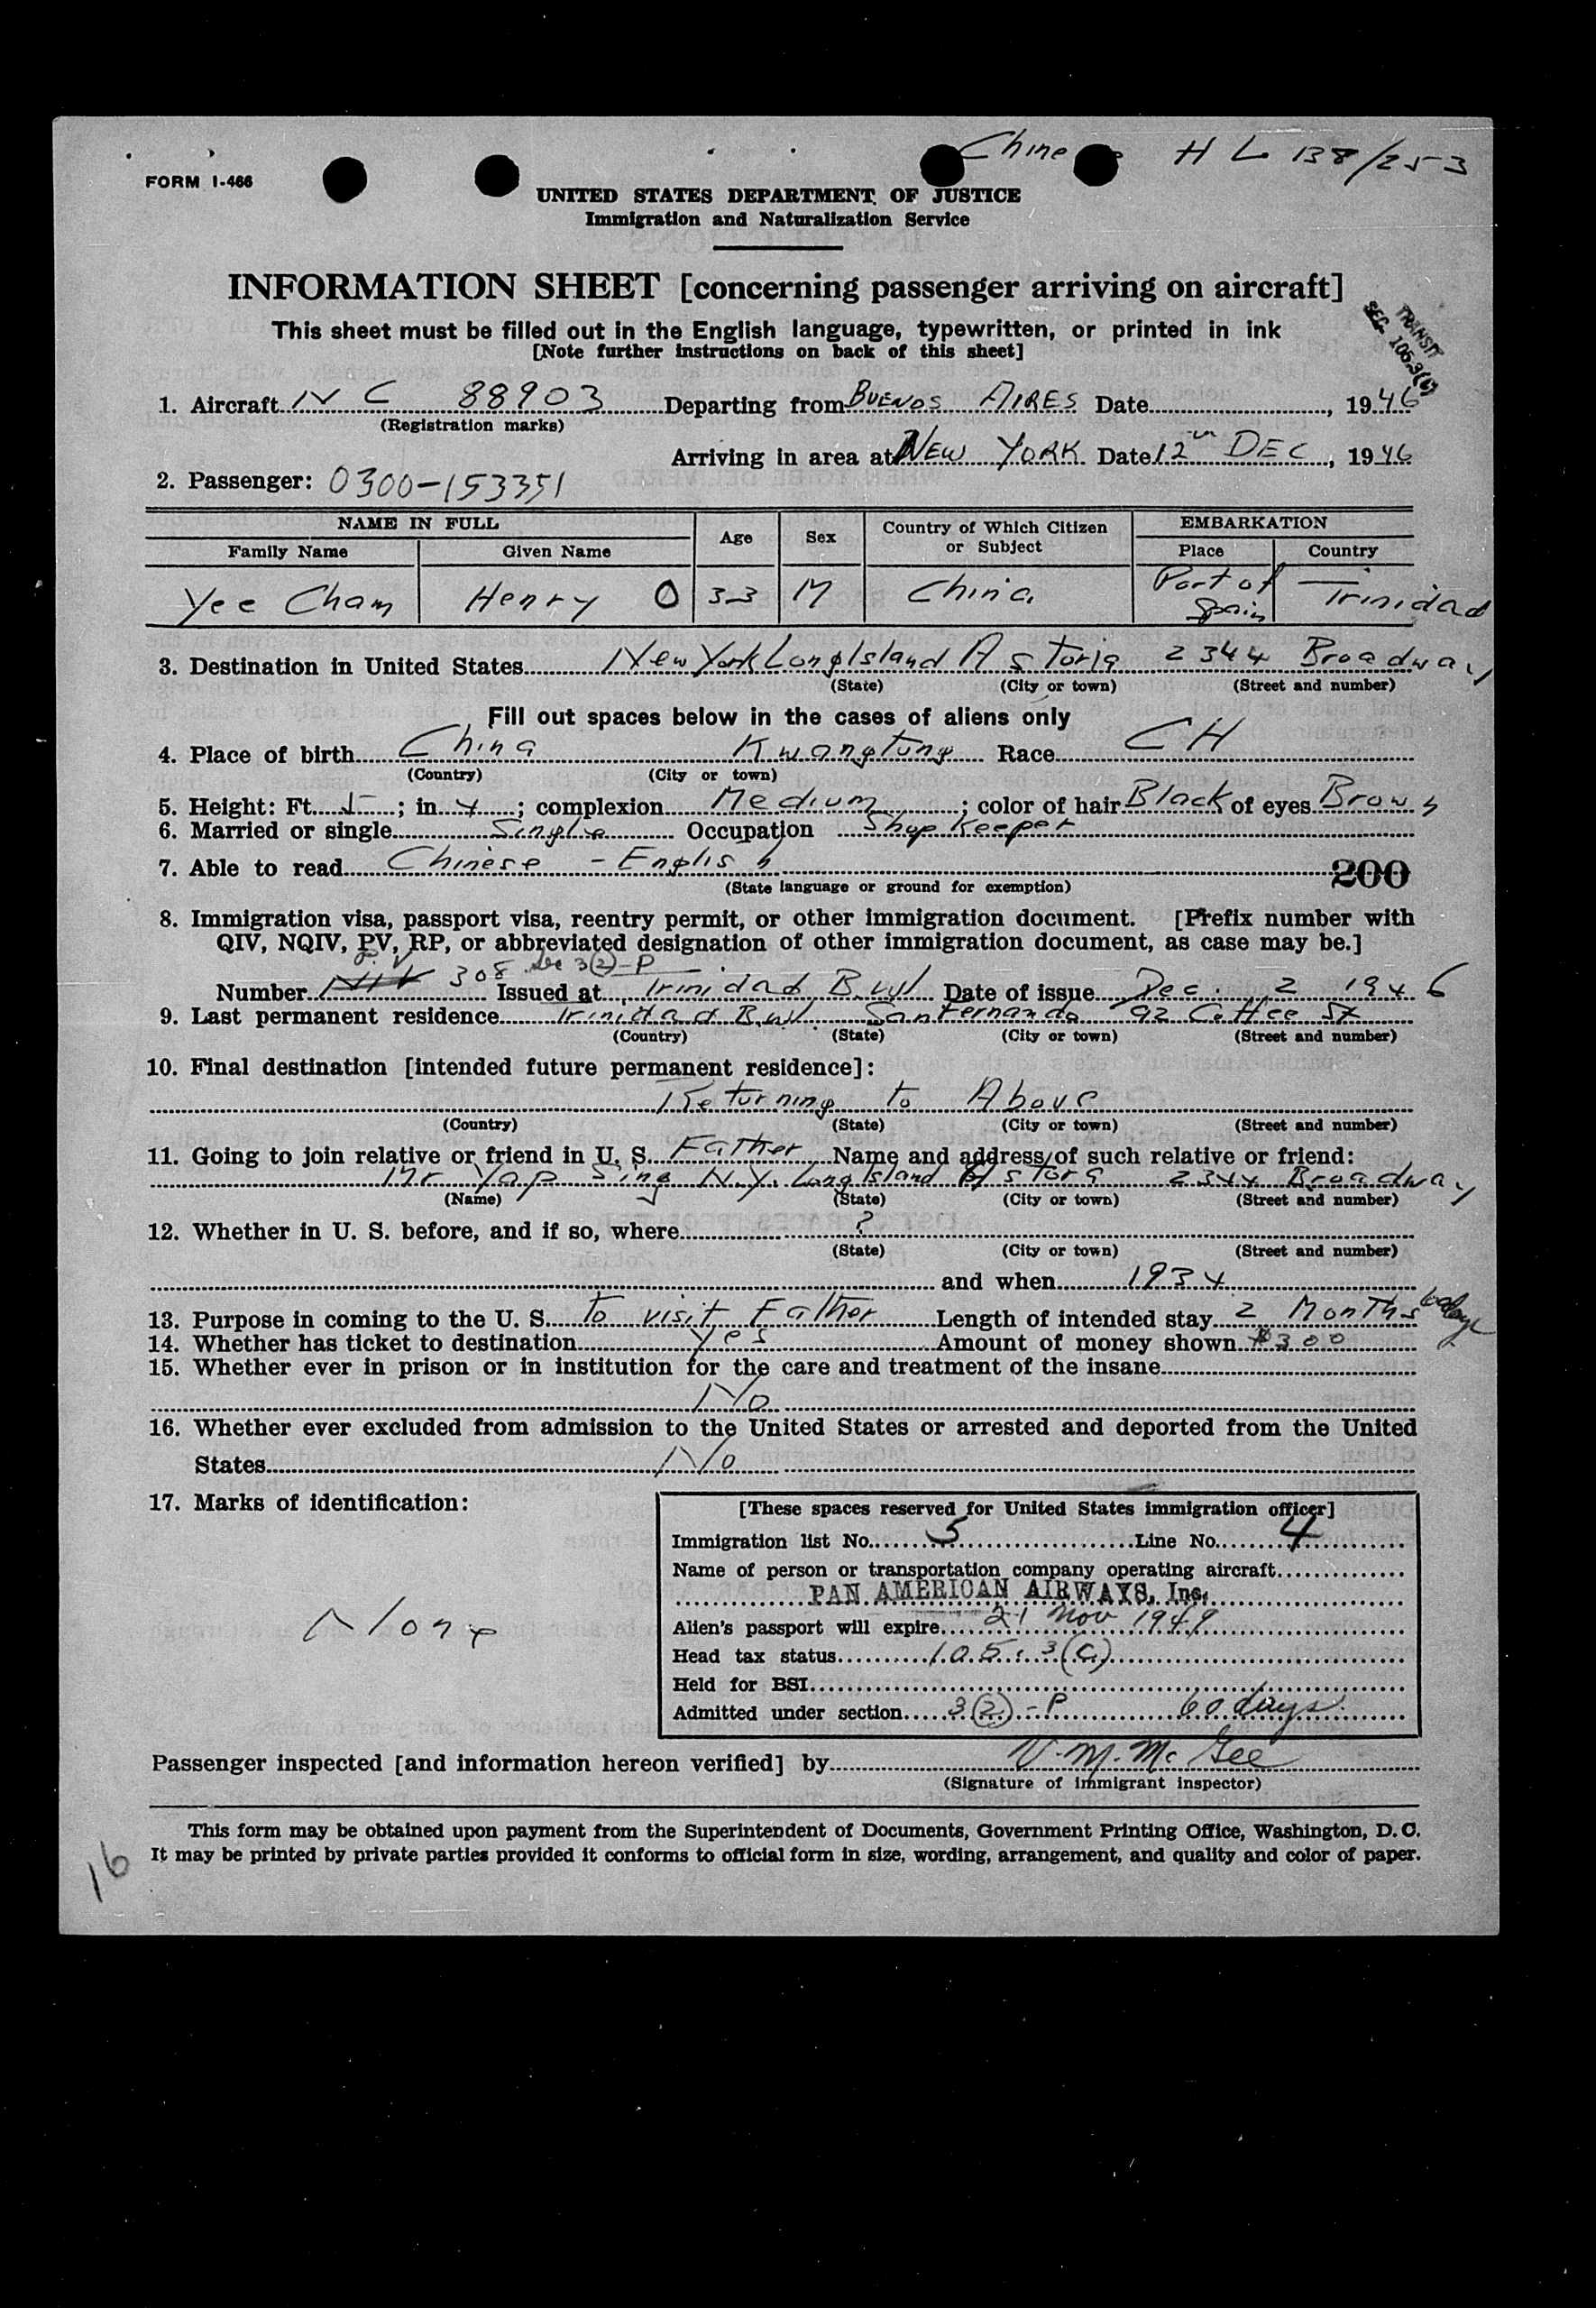 Chine H L 138/253
FORM I-466
UNITED STATES DEPARTMENT OF JUSTICE
Immigration and Naturalization Service
INFORMATION SHEET [concerning passenger arriving on aircraft]
This sheet must be filled out in the English language, typewritten, or printed in ink
[Note further instructions on back of this sheet]
TRANSIT
SEC. 105.3(c)
1. Aircraft NC 88903 Departing from BUENOS AIRES Date 1946
(Registration marks)
Arriving in area at NEW YORK Date 12th DEC, 1946
2. Passenger: 0300-153351
NAME IN FULL Age Sex Country of Which Citizen or Subject EMBARKATION
Family Name Given Name Place Country
Yee Cham Henry O 33 M China Port of Spain Trinidad
3. Destination in United States New York Long Island Astoria 2344 Broadway
(State) (City or town) (Street and number)
Fill out spaces below in the cases of aliens only
4. Place of birth China Kwangtung Race CH
(Country) (City or town)
5. Height: Ft. 5; in 4; complexion Medium; color of hair Black of eyes Brown
6. Married or single Single Occupation Shop Keeper
7. Able to read Chinese - English
(State language or ground for exemption) 200
8. Immigration visa, passport visa, reentry permit, or other immigration document. [Prefix number with
QIV, NQIV, PV, RP, or abbreviated designation of other immigration document, as case may be.]
Number 308 Sec 3(2)-P Issued at Trinidad B.W.I Date of issue Dec. 2 1946
9. Last permanent residence Trinidad B.W.I. San Fernando 92 Coffee St
(Country) (State) (City or town) (Street and number)
10. Final destination [intended future permanent residence]:
Returning to Above
(Country) (State) (City or town) (Street and number)
11. Going to join relative or friend in U. S. Father Name and address of such relative or friend:
Mr Yap Sing N.Y. Long Island Astora 2344 Broadway
(Name) (State) (City or town) (Street and number)
12. Whether in U. S. before, and if so, where ?
(State) (City or town) (Street and number)
and when 1934
13. Purpose in coming to the U. S. To visit Father Length of intended stay 2 Months 60 days
14. Whether has ticket to destination Yes Amount of money shown $300
15. Whether ever in prison or in institution for the care and treatment of the insane
No
16. Whether ever excluded from admission to the United States or arrested and deported from the United
States No
17. Marks of identification:
None
[These spaces reserved for United States immigration officer]
Immigration list No. 5 Line No. 4
Name of person or transportation company operating aircraft
PAN AMERICAN AIRWAYS, Inc.
Alien's passport will expire 21 Nov 1949
Head tax status 105.3(c)
Held for BSI
Admitted under section 3(2)-P 60 days
Passenger inspected [and information hereon verified] by V. M. Mc Gee
(Signature of immigrant inspector)
This form may be obtained upon payment from the Superintendent of Documents, Government Printing Office, Washington, D. C.
It may be printed by private parties provided it conforms to official form in size, wording, arrangement, and quality and color of paper.
16